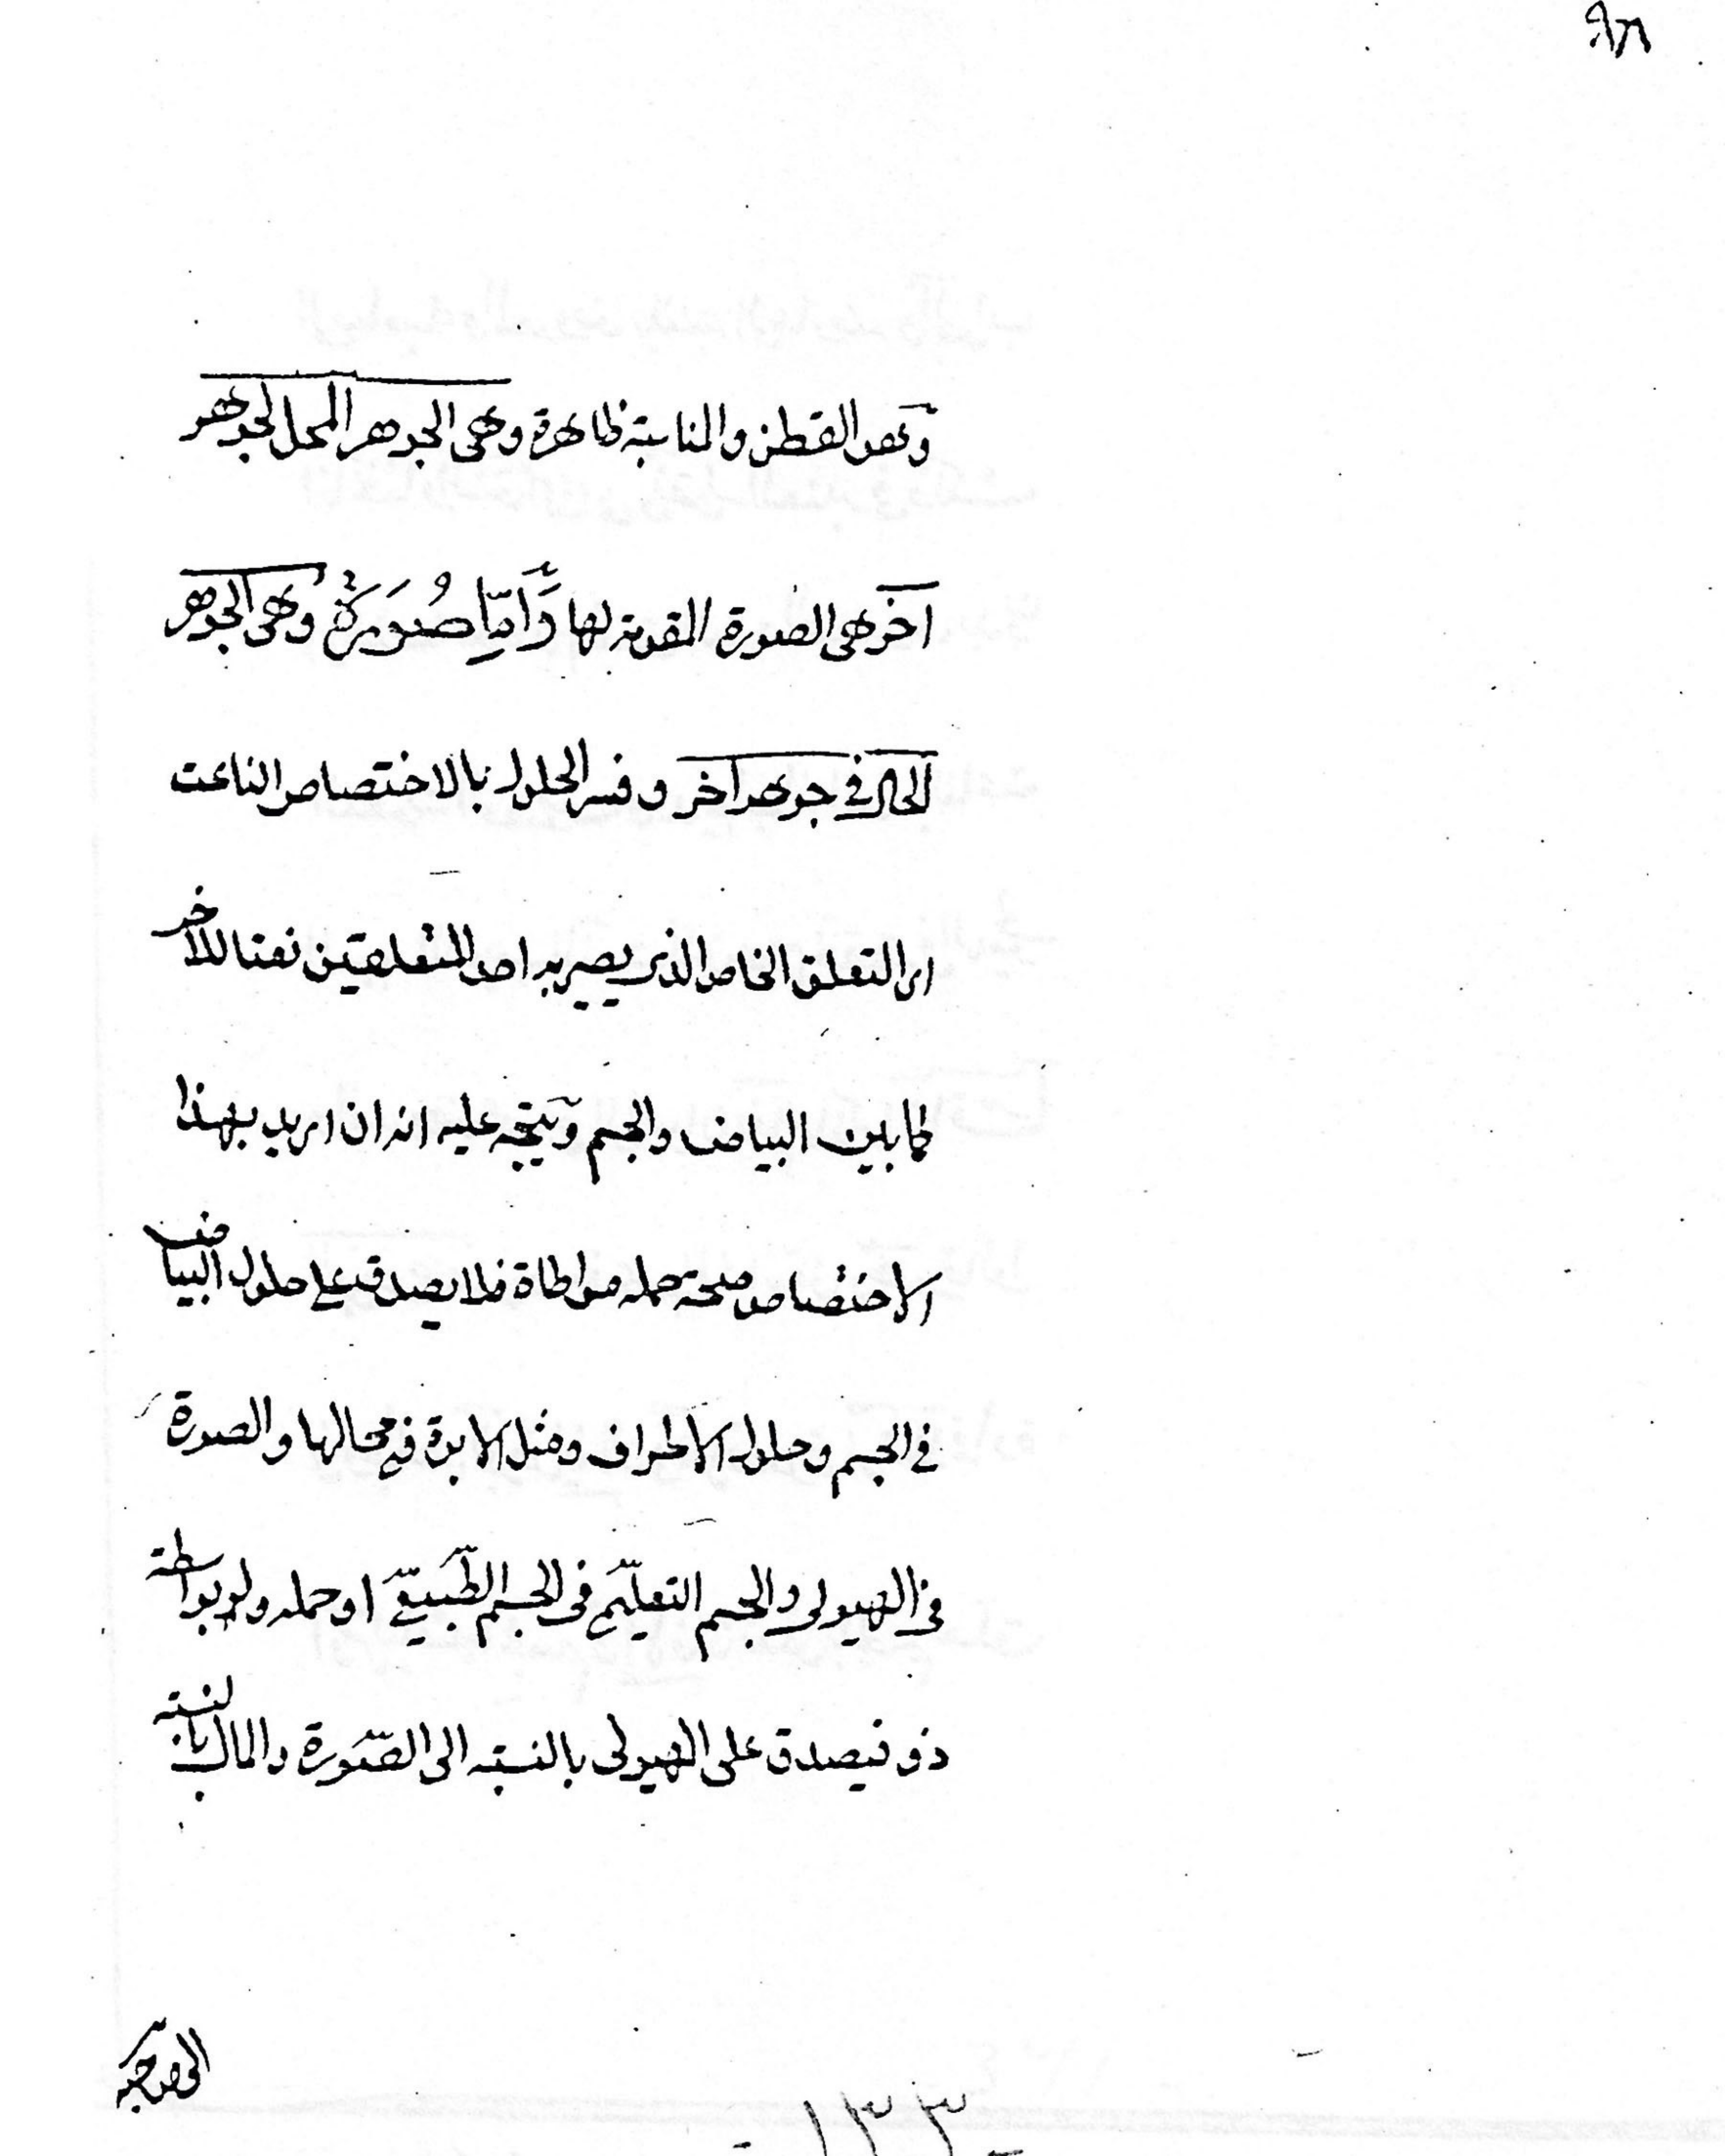 ٩٨
وهو القطن والمناسبة ظاهرة وهى الجوهر المحل لجوهر
آخر هى الصورة المقومة لها وَّامّا صُوَرَةٌ وهى الجوهر
الحال فى جوهر آخر وفسر الحلول بالاختصاص الناعت
اى التعلق الخاص الذى يصير به احد المتعلقين نعتا للآخر
كما بين البياض والجسم ويتجه عليه انه ان اريد بهذا
الاختصاص صحة حمله مواطاة فلا يصدق على حلول البياض
فى الجسم وحلول الاطراف ومثل الابوة فى محالها والصورة
فى الهيولى والجسم التعليمّى فى الجسم الطّبيعىّ او حمله ولو بواسطة
ذو فيصدق على الهيولى بالنسبة الى الصّورة والمال بالنسبة
الى صاحبه
١٣٣